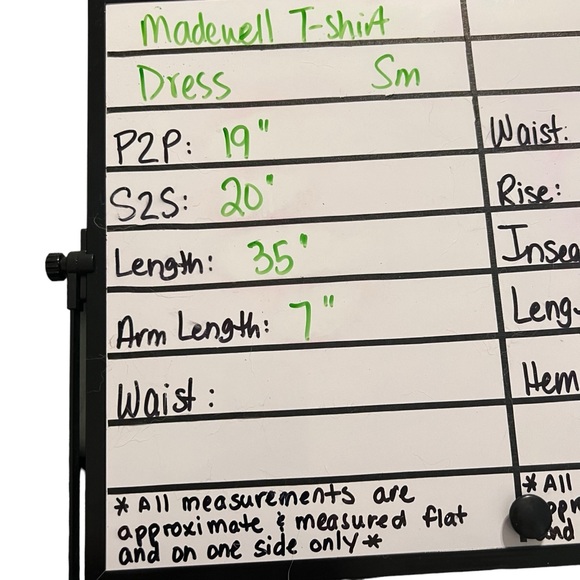 Madewell T-shirt
Dress Sm
P2P: 19"
S2S: 20'
Length: 35'
Arm Length: 7"
Waist:
* All measurements are
approximate & measured flat
and on one side only *
Waist:
Rise:
Insea
Leng
Hem
* All